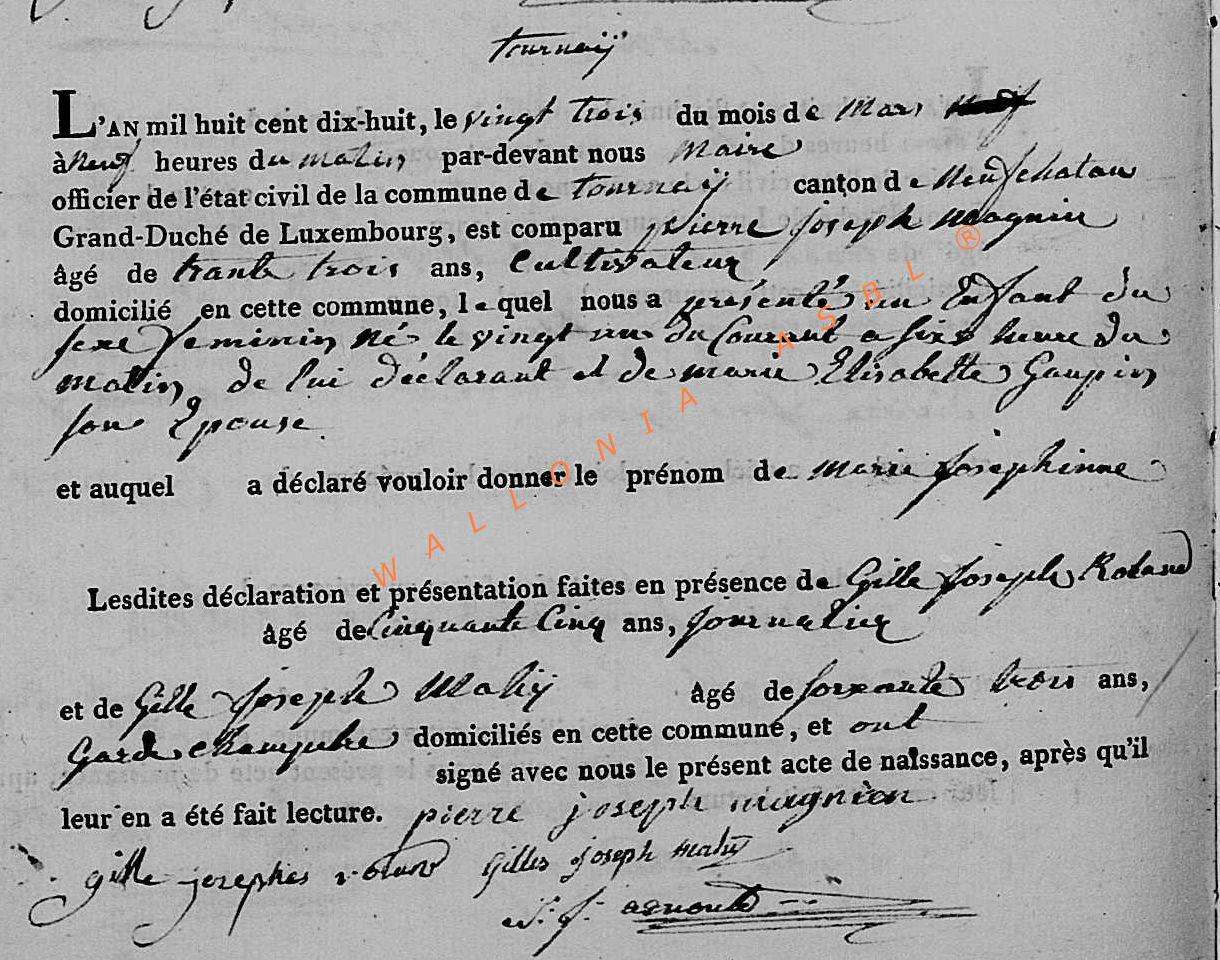 tournaÿ
L'AN mil huit cent dix-huit, le vingt trois du mois de mars
à neuf heures du matin par-devant nous maire
officier de l'état civil de la commune de tournaÿ canton de neufchatau
Grand-Duché de Luxembourg, est comparu pierre joseph magnin
âgé de trante trois ans, Cultivateur
domicilié en cette commune, le quel nous a présenté un Enfant du
sexe feminin né le vingt un du Courant a six heure du
matin de lui déclarant et de marie Elisabette Gaupin
son Epouse
et auquel a déclaré vouloir donner le prénom de marie josephinne
Lesdites déclaration et présentation faites en présence de Gille joseph Roland
âgé de Cinquante Cinq ans, journalier
et de Gille joseph Mahÿ âgé de soixante trois ans,
Garde champetre domiciliés en cette commune, et ont
signé avec nous le présent acte de naissance, après qu'il
leur en a été fait lecture. pierre joseph magnien
gille josephes roland Gilles joseph mahÿ
WALLONIA ASBL ®